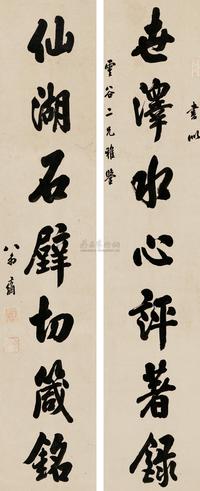 書似
世澤水心評著錄
雲谷二兄雅鑒
仙湖石壁切箴銘